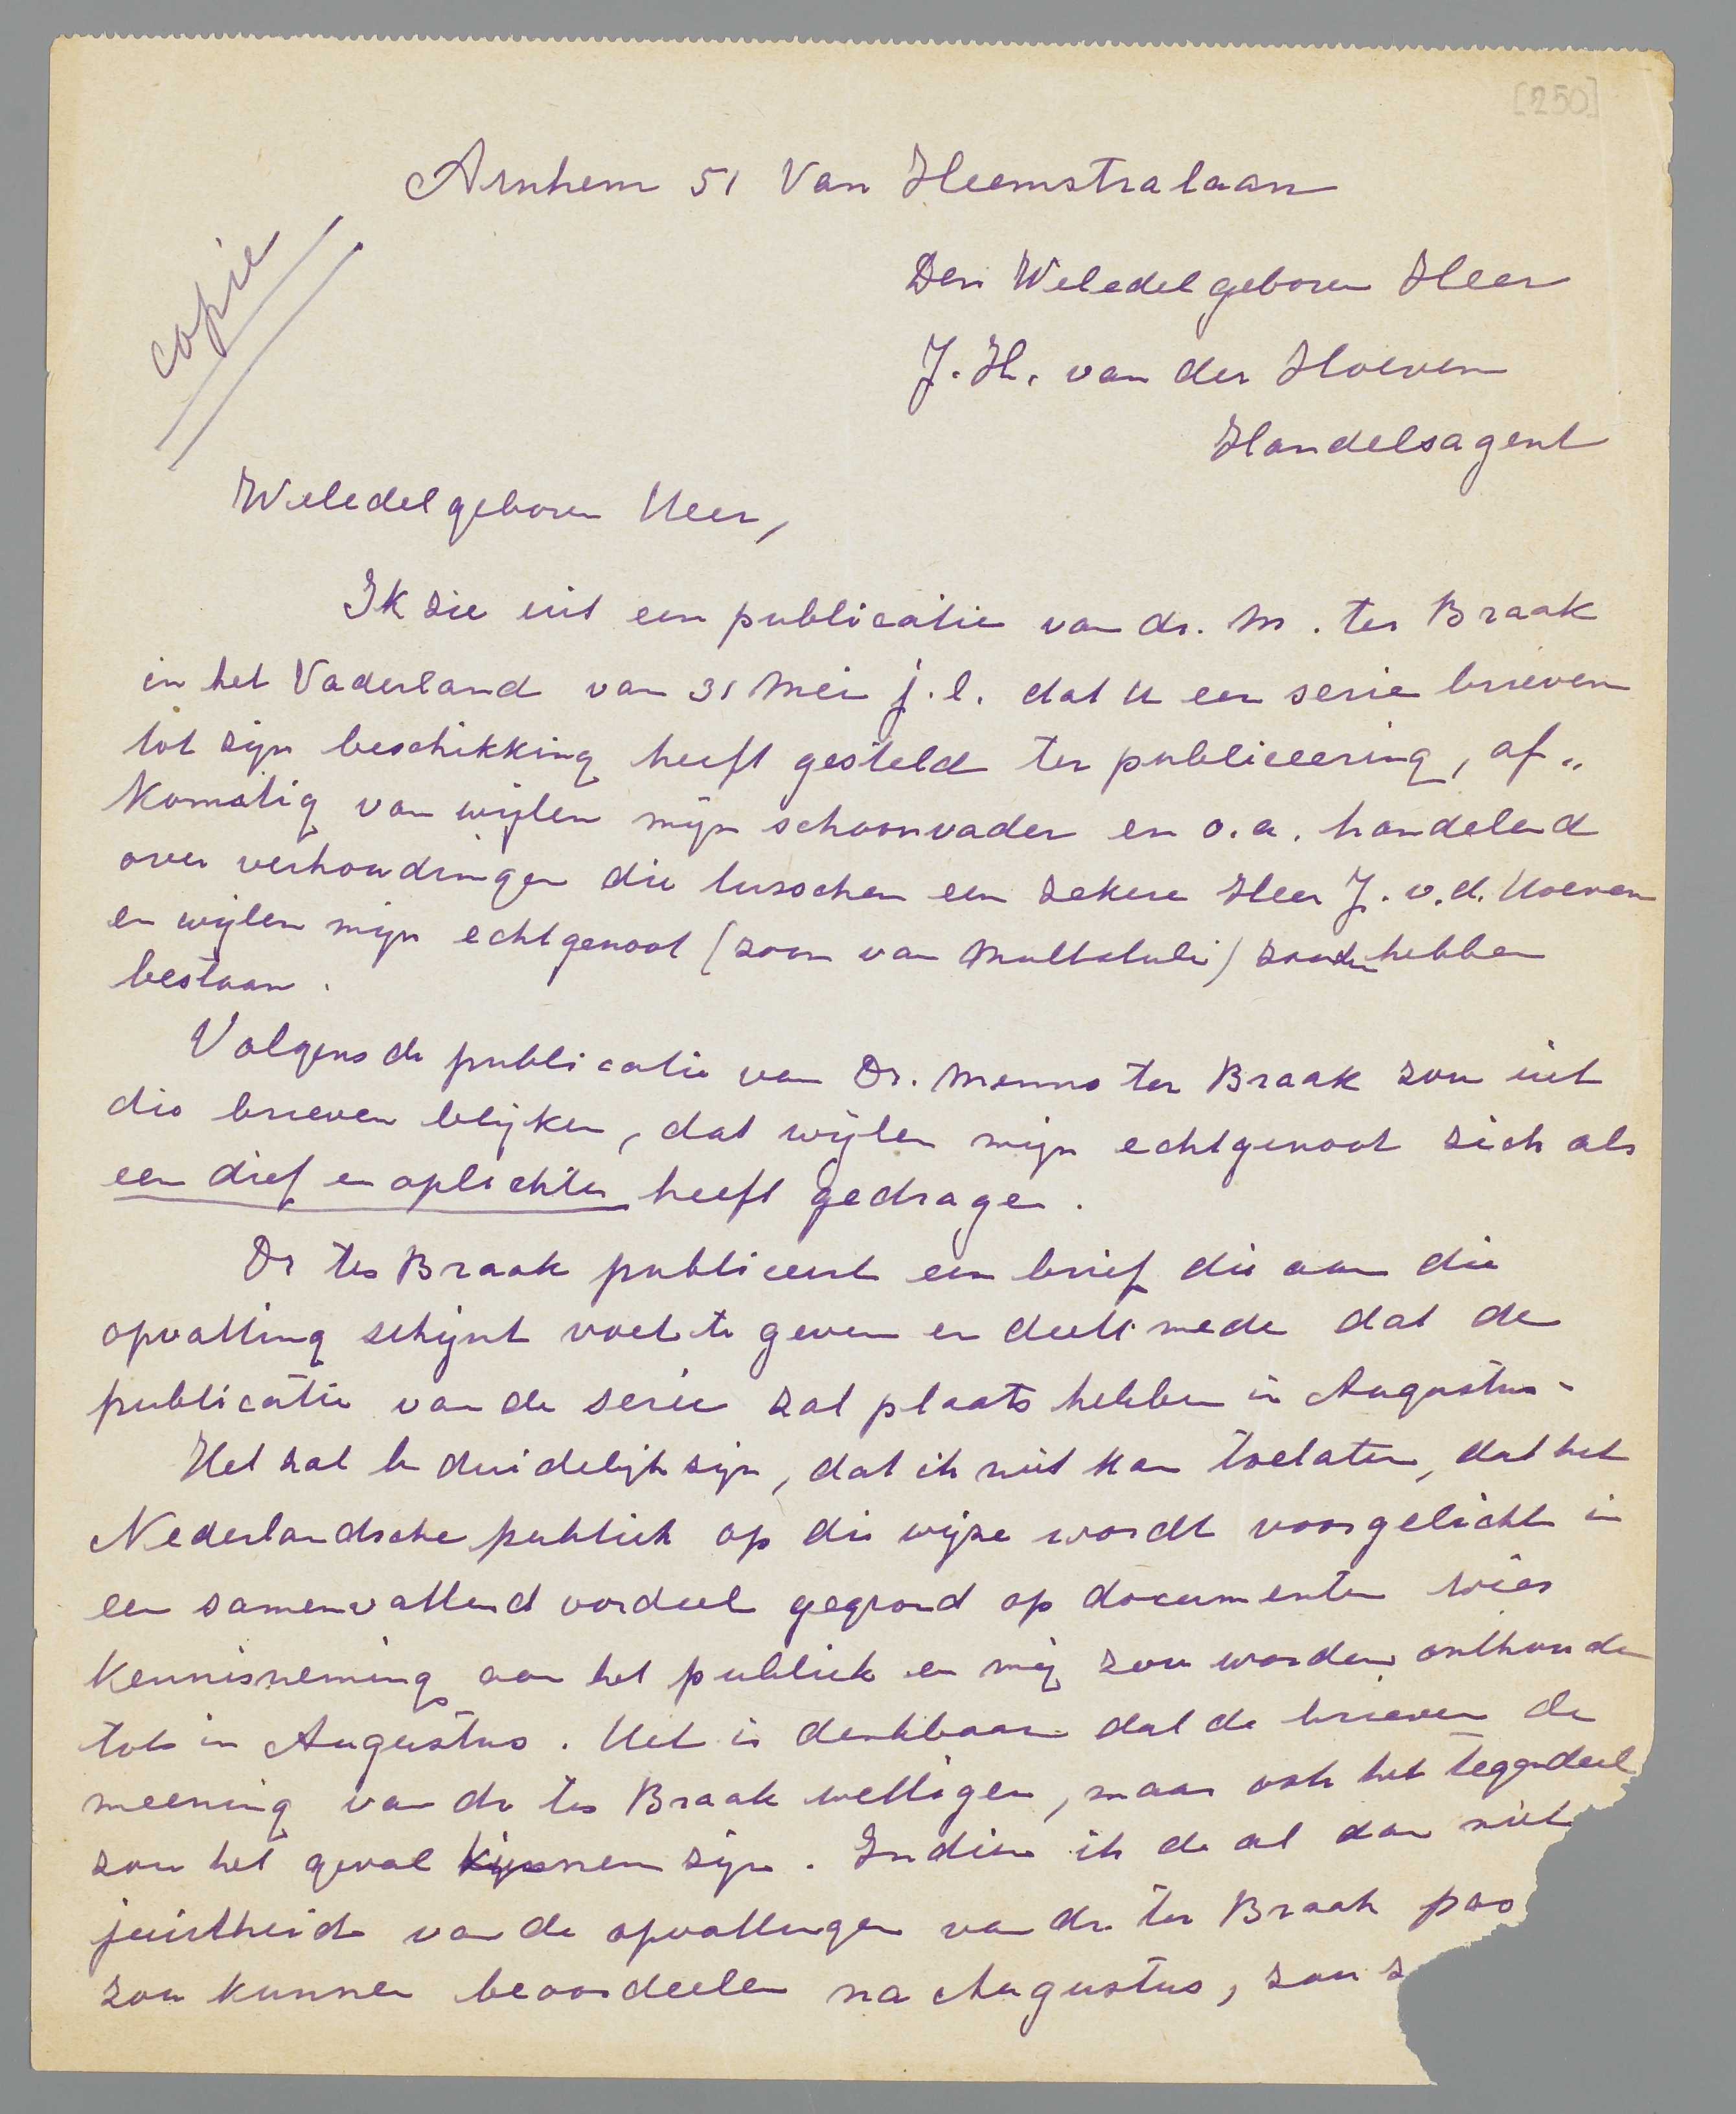 [250]
Arnhem 51 Van Heemstralaan
copie
Den Weledelgeboren Heer
J. H. van der Hoeven
Handelsagent
Weledelgeboren Heer,
Ik zie uit een publicatie van dr. M. ter Braak
in het Vaderland van 31 Mei j.l. dat U een serie brieven
tot zijn beschikking heeft gesteld ter publiceering, af„
komstig van wijlen mijn schoonvader en o.a. handelend
over verhoudingen die tusschen een zekere Heer J. v.d. Hoeven
en wijlen mijn echtgenoot (zoon van Multatuli) zouden hebben
bestaan.
Volgens de publicatie van Dr. Menno ter Braak zou uit
die brieven blijken, dat wijlen mijn echtgenoot zich als
een dief en oplichter heeft gedragen.
Dr ter Braak publiceert een brief die aan die
opvatting schijnt voet te geven en deelt mede dat de
publicatie van de serie zal plaats hebben in Augustus.
Het zal U duidelijk zijn, dat ik niet kan toelaten, dat het
Nederlandsche publiek op die wijze wordt voorgelicht in
een samenvattend oordeel gegrond op documenten wier
kennisneming aan het publiek en mij zou worden onthouden
tot in Augustus. Het is denkbaar dat de brieven de
meening van dr ter Braak wettigen, maar ook het tegendeel
zou het geval kunnen zijn. Indien ik de al dan niet
juistheid van de opvattingen van dr. ter Braak pas
zou kunnen beoordeelen na Augustus, zou z